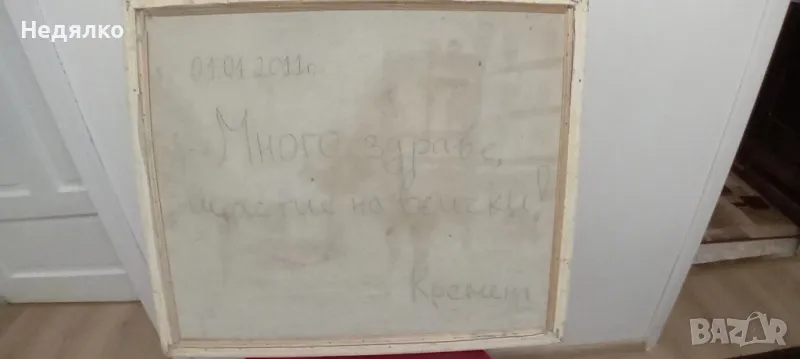 Недялко
01.01.2011г.
Много здраве,
щастие на всички!
Кремен
BAZAR
bg